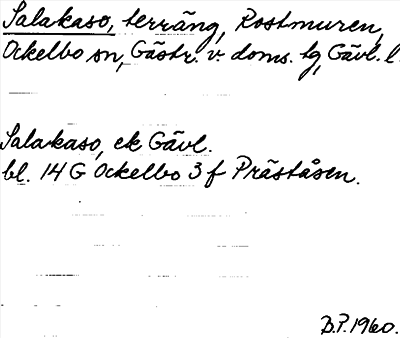 Salakaso, terräng, Rostmuren,
Ockelbo sn, Gästr. v. doms. tg, Gävl. l.
Salakaso, ek Gävl.
bl. 14 G Ockelbo 3 f Präståsen.
B.P. 1960.